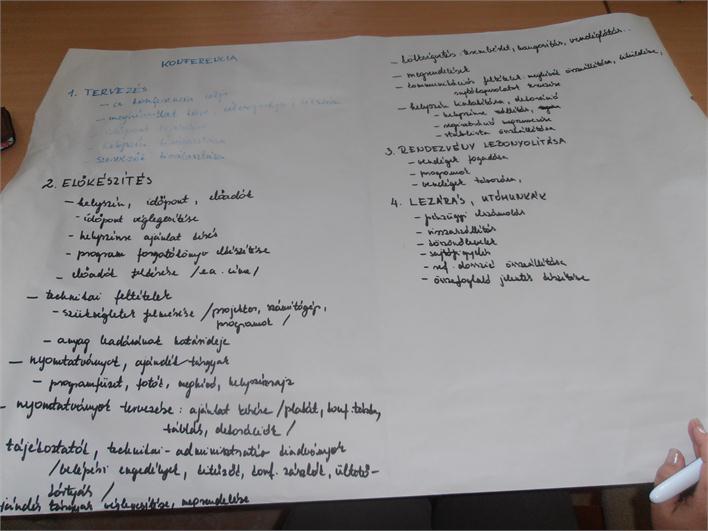 KONFERENCIA
1. TERVEZÉS
- a konferencia célja
- helyszín kiválasztása
- szervezők kiválasztása
2. ELŐKÉSZÍTÉS
- helyszín, időpont, előadók
- időpont véglegesítése
- helyszínre ajánlat kérés
- program forgatókönyv elkészítése
- előadók felkérése /ea. címe/
- technikai feltételek
- szükségletek felmérése /projektor, számítógép,
programok/
- anyag leadásának határideje
- nyomtatványok, ajándék tárgyak
- programfüzet, fotók, meghívó, helyszínrajz
- nyomtatványok tervezése: ajánlat kérése /plakát, konf. táska,
táblás, dekorációk/
tájékoztatók, technikai-adminisztratív kiadványok
/belépési engedélyek, kitűzők, konf. zászlók, ültető-
kártyák/
ajándék tárgyak véglegesítése, megrendelése
- költségvetés - teremberlet, hangosítás, vendéglátás..
- megrendelések
- kommunikációs feltételek meghívók összeállítása, kiküldése,
sajtókapcsolat szervezése
- helyszín kialakítása, dekoráció
- helyszínre szállítás,
- regisztráció megszervezése
- összeállítása
3. RENDEZVÉNY LEBONYOLÍTÁSA
- vendégek fogadása
- programok
- vendégek távozása,
4. LEZÁRÁS, UTÓMUNKÁK
- pénzügyi elszámolás
- visszaszállítás
- köszönőlevelek
- sajtófigyelés
- ref. dosszié összeállítása
- összefoglaló jelentés készítése